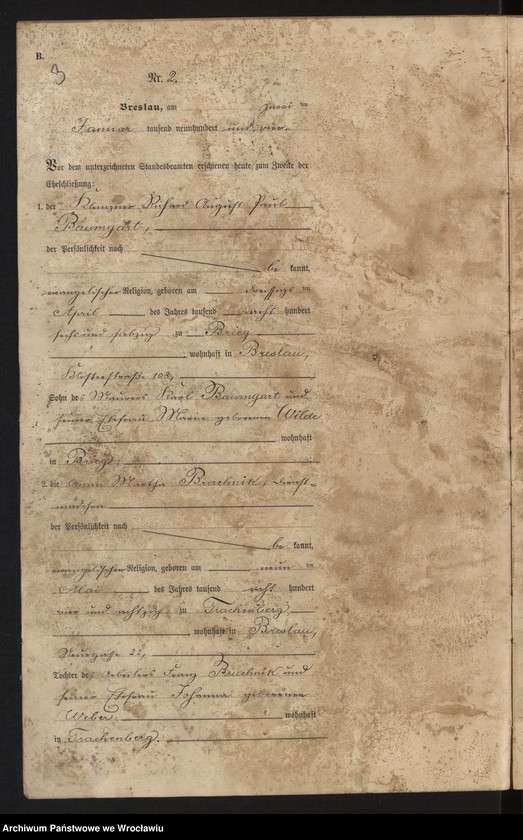 B.
3
Nr. 2.
Breslau, am zwei ten
Januar tausend neunhundert und vier.
Vor dem unterzeichneten Standesbeamten erschienen heute zum Zwecke der
Eheschließung:
1. der Klempner Richard August Paul
Baumgart,
der Persönlichkeit nach
be kannt,
evangelischer Religion, geboren am dreissigs ten
April des Jahres tausend acht hundert
sechs und siebzig zu Brieg
wohnhaft in Breslau,
Klosterstraße 108,
Sohn des Maurers Karl Baumgart und
seiner Ehefrau Marie geborenen Wilde
wohnhaft
in Brieg,
2. die Anna Martha Bruchnik, Dienst-
mädchen
der Persönlichkeit nach
be kannt,
evangelischer Religion, geboren am neun ten
Mai des Jahres tausend acht hundert
vier und achtzig zu Trachenberg
wohnhaft in Breslau,
Neuegasse
Tochter des Arbeiters Franz Bruchnik und
seiner Ehefrau Johanna geborenen
Weber
wohnhaft
in Trachenberg.
Archiwum Państwowe we Wrocławiu